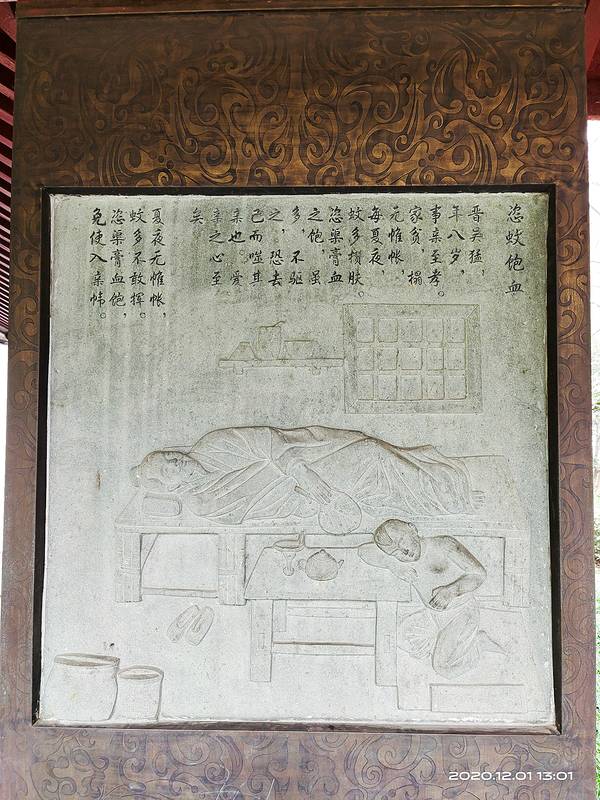 恣蚊饱血
晋吴猛，
年八岁，
事亲至孝。
家贫，榻
无帷帐，
每夏夜，
蚊多攒肤。
恣渠膏血
之饱，虽
多，不驱
之，恐去
己而噬其
亲也。爱
亲之心至
矣
夏夜无帷帐，
蚊多不敢挥。
恣渠膏血饱，
免使入亲帏。
2020.12.01 13:01